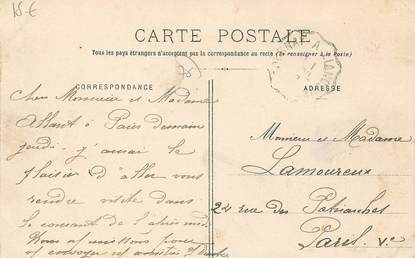 15 €
CARTE POSTALE
Tous les pays étrangers n'acceptent pas la correspondance au recto (Se renseigner à la Poste)
CORRESPONDANCE
ADRESSE
Cher Monsieur et Madame
Allant à Paris demain
jeudi j'aurai le
plaisir d'aller vous
rendre visite dans
le courant de l'après midi
Monsieur et Madame
Lamoureux
24 rue des Patriarches
Paris. Ve